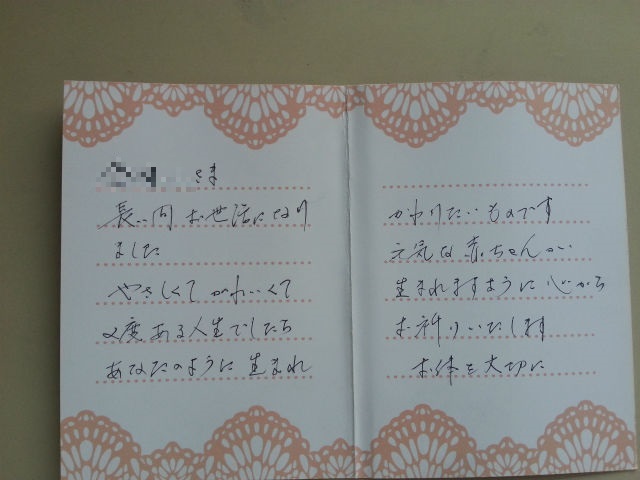 さま
長い間 お世話になり
ました
やさしくて かわいくて
2度ある人生でしたら
あなたのように 生まれ
かわりたいものです
元気な赤ちゃんが
生まれますように 心から
お祈りいたします
お体を大切に